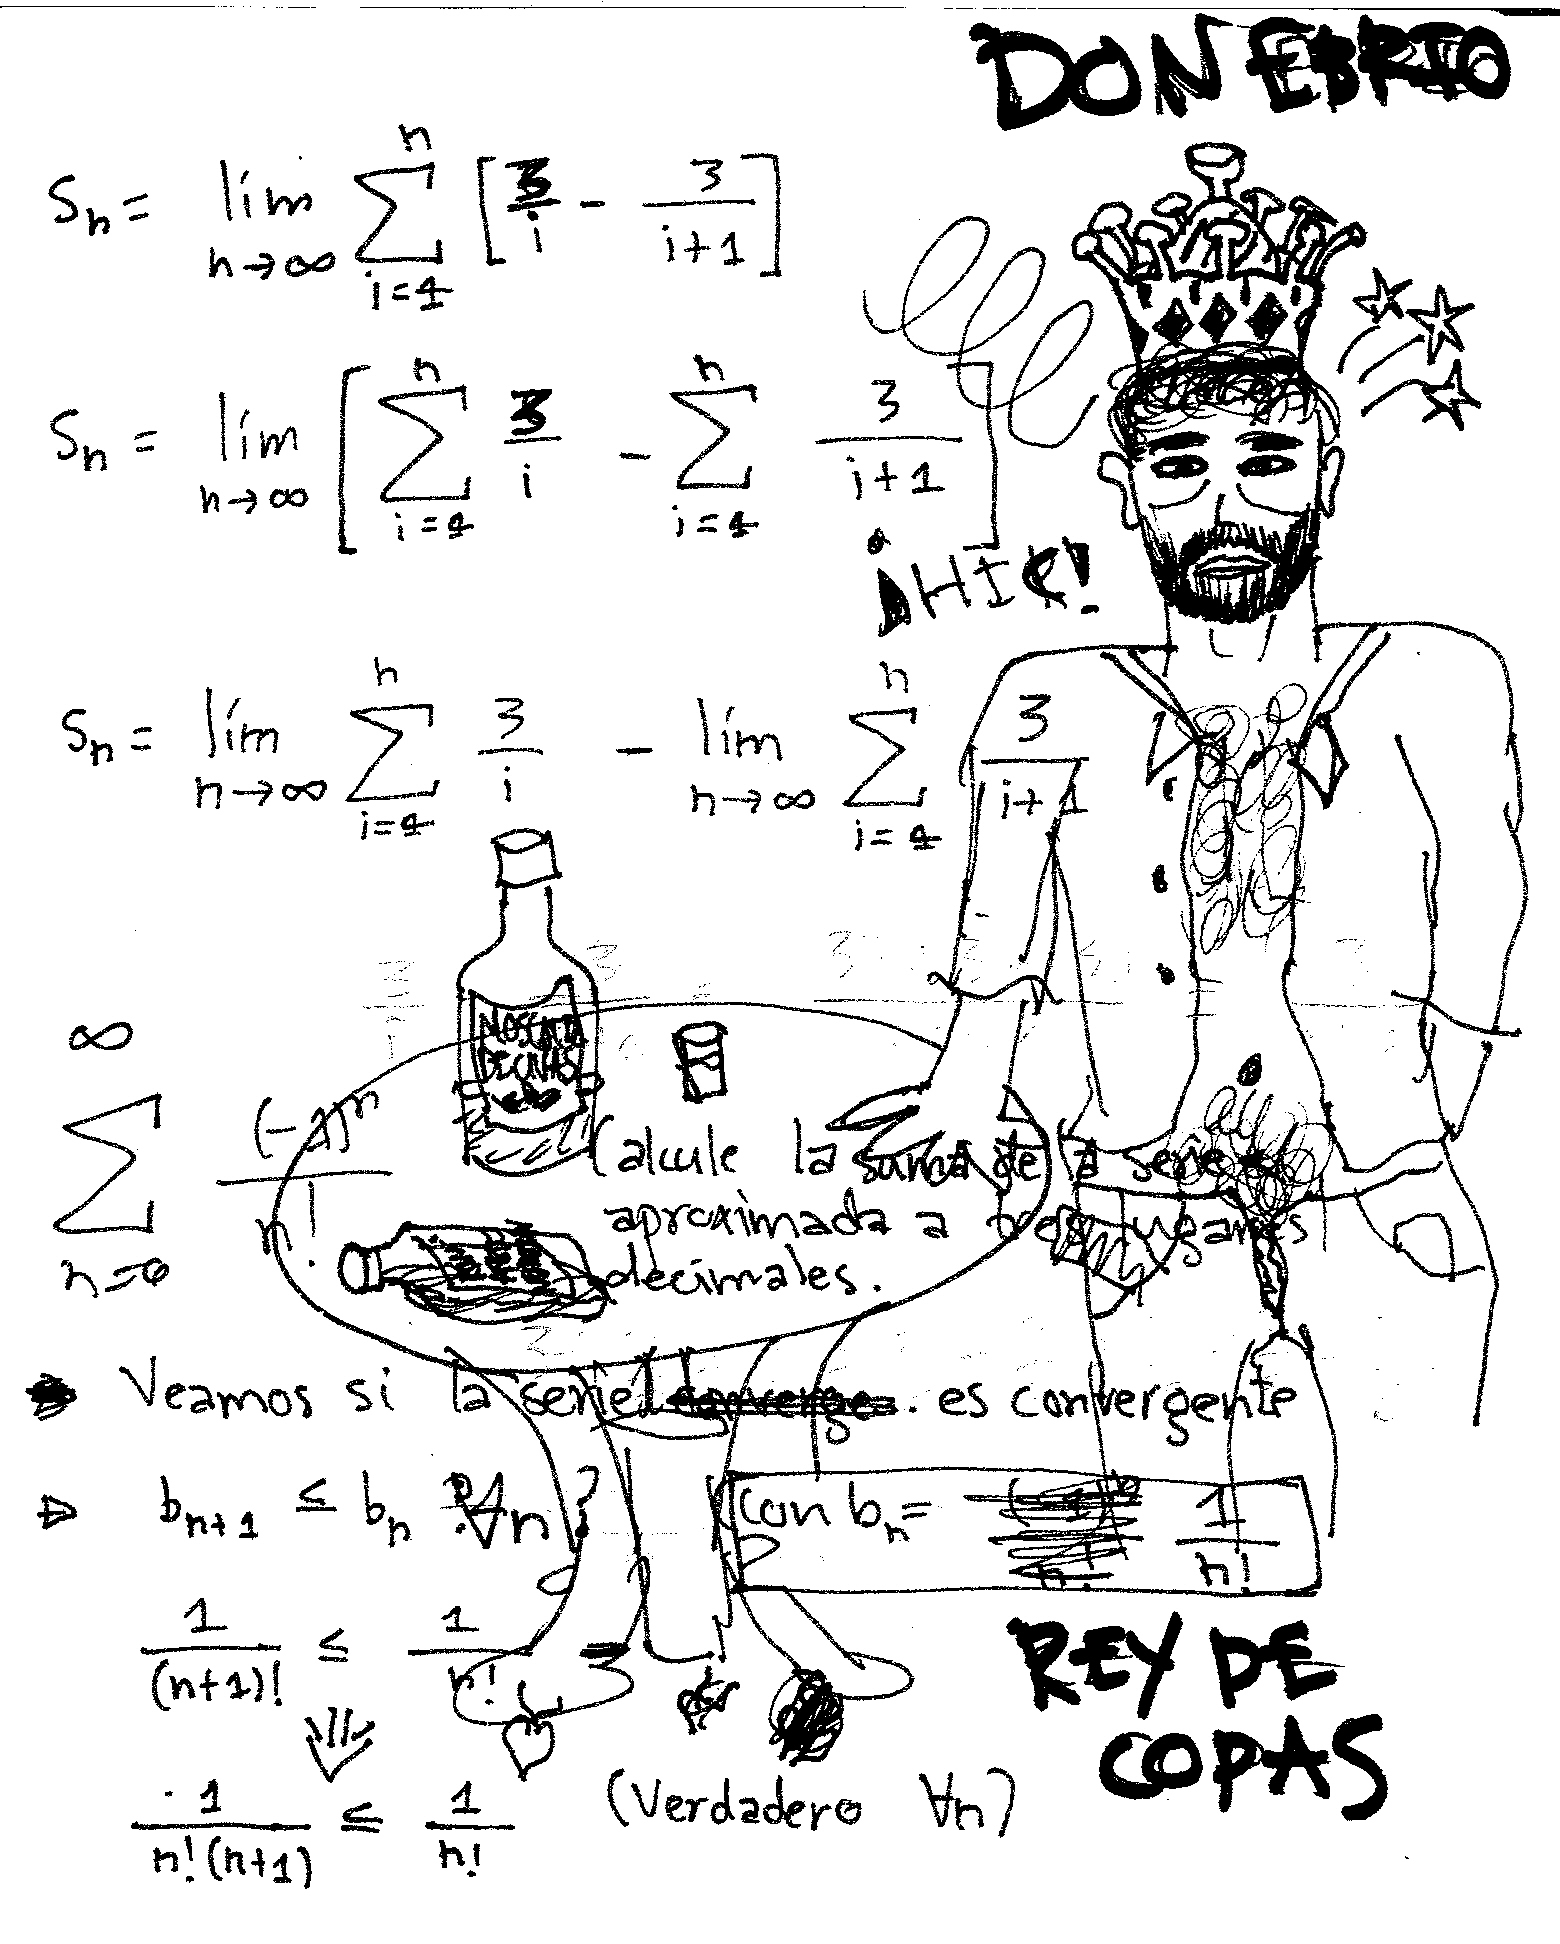 DON EBRIO
Sₙ = lím n→∞ ∑ i=1 n [3/i - 3/i+1]
Sₙ = lím n→∞ [∑ i=1 n 3/i - ∑ i=1 n 3/i+1]
¡HIC!
Sₙ = lím n→∞ ∑ i=1 n 3/i - lím n→∞ ∑ i=1 n 3/i+1
MOSCATA
DE
∑ n=0 ∞ (-1)ⁿ/n! Calcule la suma de la serie
aproximada a tres lugares
decimales.
Veamos si la serie converge. es convergente
bₙ₊₁ ≤ bₙ ?∀n? (con bₙ = 1/n!
1/(n+1)! ≤ 1/n!
1/n!(n+1) ≤ 1/n! (Verdadero ∀n)
REY DE
COPAS